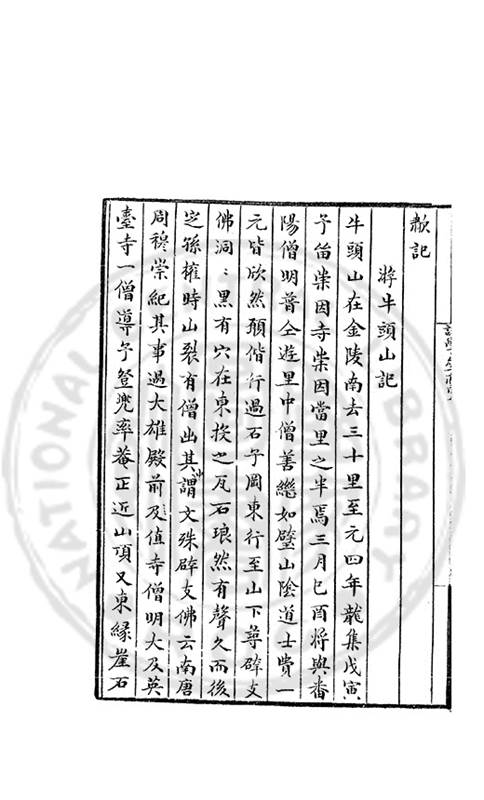 歗記
游牛頭山記
牛頭山在金陵南去三十里至元四年龍集戊寅
予留崇因寺崇因當里之半焉三月己酉將與番
陽僧明普仝遊里中僧善繼如璧山陰道士費一
元皆欣然願偕行過石子岡東行至山下尋辟支
佛洞﹕黒有穴在東投之瓦石琅然有聲久而後
定孫權時山裂有僧出其謂文殊辟支佛云南唐
周穆崇紀其事過大雄殿前及值寺僧明大及英
臺寺一僧導予登兜率菴正近山頂又東緣崖石
NATIONAL LIBRARY